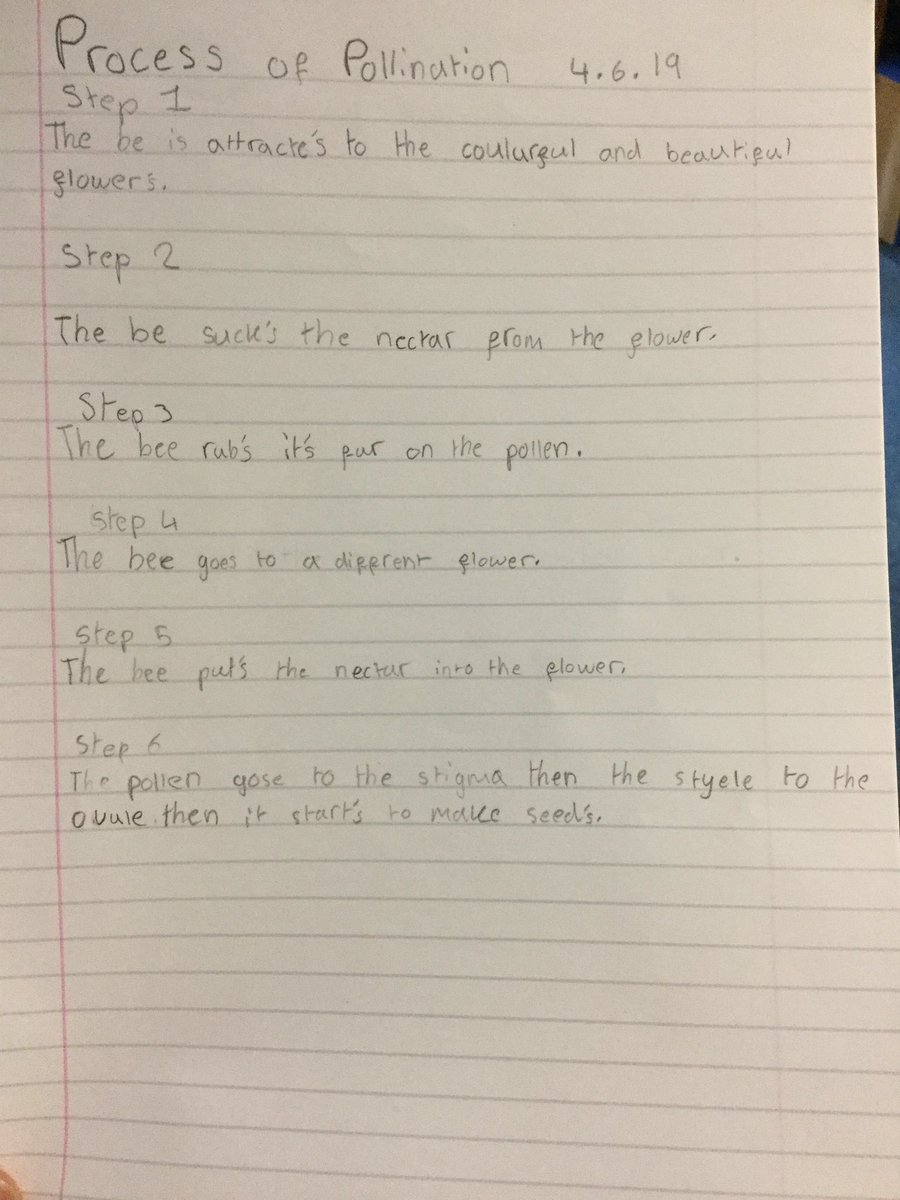 Process of Pollination 4.6.19
Step 1
The be is attracte's to the coulurful and beautiful
flowers.
Step 2
The be suck's the nectar from the flower.
Step 3
The bee rub's it's fur on the pollen.
Step 4
The bee goes to a diffrent flower.
Step 5
The bee put's the nectar into the flower.
Step 6
The pollen gose to the stigma then the styele to the
ovule then it start's to make seed's.